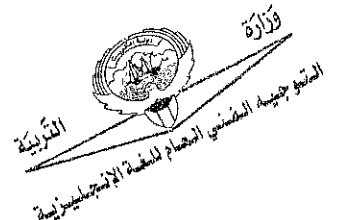 وزارة
التربية
التوجيه الفني العام للغة الإنجليزية